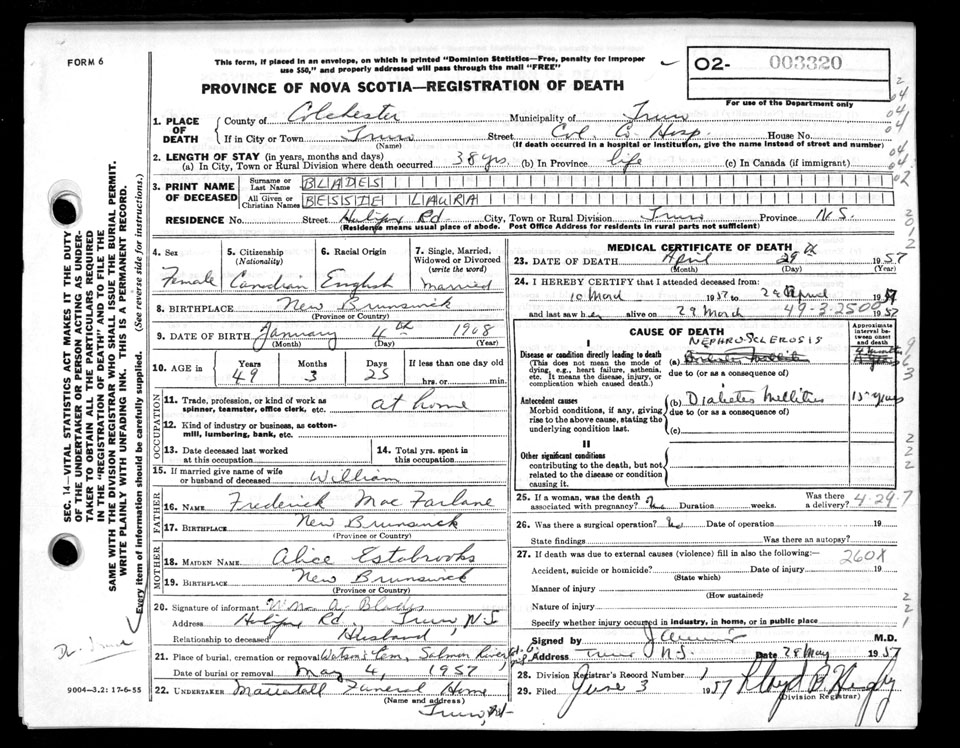 FORM 6
This form, if placed in an envelope, on which is printed "Dominion Statistics—Free, penalty for improper
use $50," and properly addressed will pass through the mail "FREE"
02- 003320
For use of the Department only
PROVINCE OF NOVA SCOTIA—REGISTRATION OF DEATH
1. PLACE OF DEATH
County of Colchester Municipality of Truro
If in City or Town Truro Street Col. C. Hosp. House No.
(Name) (If death occurred in a hospital or institution, give the name instead of street and number)
2. LENGTH OF STAY (in years, months and days)
(a) In City, Town or Rural Division where death occurred 38 yrs. (b) In Province life (c) In Canada (if immigrant)
3. PRINT NAME OF DECEASED
Surname or Last Name BLADES
All Given or Christian Names BESSIE LAURA
RESIDENCE No. Street Halifax Rd City, Town or Rural Division Truro Province N.S.
(Residence means usual place of abode. Post Office Address for residents in rural parts not sufficient)
4. Sex Female
5. Citizenship (Nationality) Canadian
6. Racial Origin English
7. Single, Married, Widowed or Divorced (write the word) Married
8. BIRTHPLACE New Brunswick
(Province or Country)
9. DATE OF BIRTH January 4th 1908
(Month) (Day) (Year)
10. AGE in Years 49 Months 3 Days 25 If less than one day hrs. or min.
OCCUPATION
11. Trade, profession, or kind of work as spinner, teamster, office clerk, etc. at home
12. Kind of industry or business, as cotton-mill, lumbering, bank, etc.
13. Date deceased last worked at this occupation
14. Total yrs. spent in this occupation
15. If married give name of wife or husband of deceased William
FATHER
16. NAME Frederick MacFarlane
17. BIRTHPLACE New Brunswick
(Province or Country)
MOTHER
18. MAIDEN NAME Alice Estabrooks
19. BIRTHPLACE New Brunswick
(Province or Country)
20. Signature of informant Wm A. Blades
Address Halifax Rd., Truro, N.S.
Relationship to deceased Husband
21. Place of burial, cremation or removal Watson's Cem, Salmon River
Date of burial or removal May 4, 1957
22. UNDERTAKER Mattatall Funeral Home
(Name and address)
Truro, N.S.
MEDICAL CERTIFICATE OF DEATH
23. DATE OF DEATH April 29 1957
(Month) (Day) (Year)
24. I HEREBY CERTIFY that I attended deceased from:
10 March 1957 to 29 April 1957
and last saw her alive on 29 March 49-3-2500 1957
CAUSE OF DEATH
Approximate interval between onset and death
I
NEPHROSCLEROSIS
Disease or condition directly leading to death (a)
(This does not mean the mode of dying, e.g., heart failure, asthenia, etc. It means the disease, injury, or complication which caused death.)
due to (or as a consequence of)
Antecedent causes (b) Diabetes Mellitus 15 years
Morbid conditions, if any, giving rise to the above cause, stating the underlying condition last.
due to (or as a consequence of)
(c)
II
Other significant conditions
contributing to the death, but not related to the disease or condition causing it.
25. If a woman, was the death associated with pregnancy? No Duration weeks. Was there a delivery? 4-29-7
26. Was there a surgical operation? No Date of operation 19
State findings Was there an autopsy?
27. If death was due to external causes (violence) fill in also the following:
260X
Accident, suicide or homicide? Date of injury 19
(State which)
Manner of injury
(How sustained)
Nature of injury
Specify whether injury occurred in industry, in home, or in public place
Signed by M.D.
Address Truro N.S. Date 28 May 1957
28. Division Registrar's Record Number
29. Filed June 3 1957
(Division Registrar)
SEC. 14—VITAL STATISTICS ACT MAKES IT THE DUTY
OF THE UNDERTAKER OR PERSON ACTING AS UNDER-
TAKER TO OBTAIN ALL THE PARTICULARS REQUIRED
IN THE "REGISTRATION OF DEATH" AND TO FILE THE
SAME WITH THE DIVISION REGISTRAR WHO SHALL ISSUE THE BURIAL PERMIT.
WRITE PLAINLY WITH UNFADING INK. THIS IS A PERMANENT RECORD.
Every item of information should be carefully supplied. (See reverse side for instructions.)
9004—3.2: 17-6-55